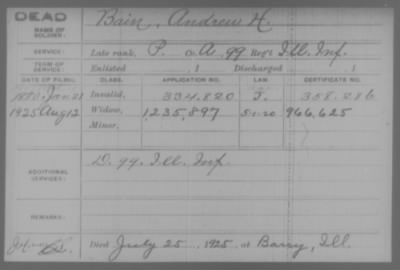 DEAD
NAME OF SOLDIER: Bain, Andrew H.
SERVICE: Late rank, P. Co. A. 99 Reg't Ill. Inf.
TERM OF SERVICE: Enlisted , 1 Discharged , 1
DATE OF FILING. CLASS. APPLICATION NO. LAW CERTIFICATE NO.
1880. Jan 21 Invalid, 334.820 J. 358.286
1925 Aug 12 Widow, 1,235,897 5-1-20 966,625
Minor,
ADDITIONAL SERVICES: D. 99. Ill. Inf.
REMARKS:
Died July 25, 1925, at Barry, Ill.